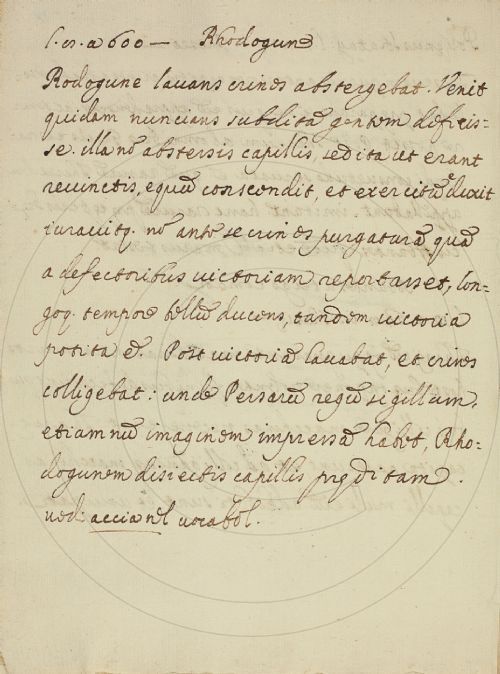 l. cs. a 600 — Rhodogune
Rodogune lavans crines abstergebat. Venit
quidam nuncians subditā gentem defecis=
se. illa nō abstersis capillis, sed ita ut erant
revinctis, equū conscendit, et exercitū eduxit
iuravitq. nō ante se crines purgaturā quā
a defectoribus victoriam reportasset, lon=
goq. tempore bellū ducens, tandem victoria
potita ē. Post victoriā lavabat, et crines
colligebat: unde Persarū regū sigillum,
etiamnū imaginem impressā habet, Rho-
dogunem disiectis capillis pręditam.
ved: accia nel vocabol.